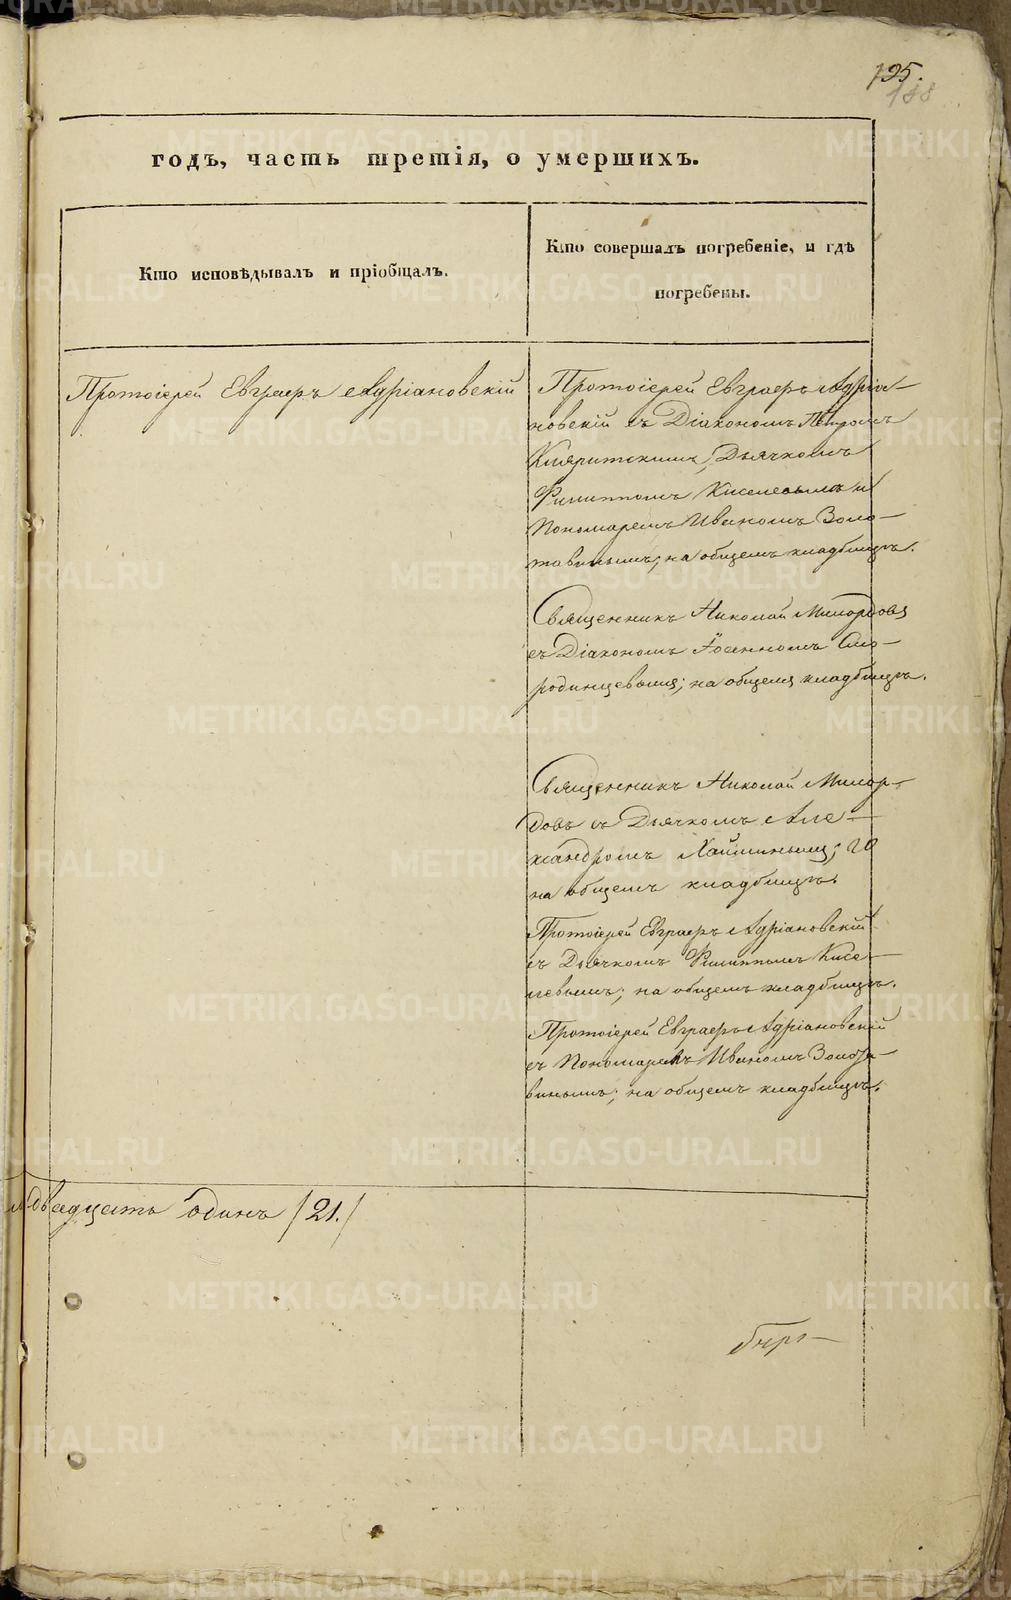 195.
188
годъ, часть третія, о умершихъ.
Кто исповѣдывалъ и пріобщалъ.
Кто совершалъ погребеніе, и гдѣ
погребены.
Протоіерей Евграфъ Адріановскій
Протоіерей Евграфъ Адріа-
новскій съ Діакономъ Петромъ
Дьячкомъ
Филиппомъ Киселевымъ и
Пономаремъ Иваномъ Золо-
тавинымъ; на общемъ кладбищѣ.
Священникъ Николай Милордовъ
съ Діакономъ Іоанномъ Смо-
родинцевымъ; на общемъ кладбищѣ.
Священникъ Николай Милор-
довъ съ Дьячкомъ Але-
ксандромъ Хайминымъ;
на общемъ кладбищѣ.
Протоіерей Евграфъ Адріановскій
съ Дьячкомъ Филиппомъ Кисе-
левымъ; на общемъ кладбищѣ.
Протоіерей Евграфъ Адріановскій
съ Пономаремъ Иваномъ Золота-
винымъ; на общемъ кладбищѣ.
двадцать одинъ /21./
METRIKI.GASO-URAL.RU